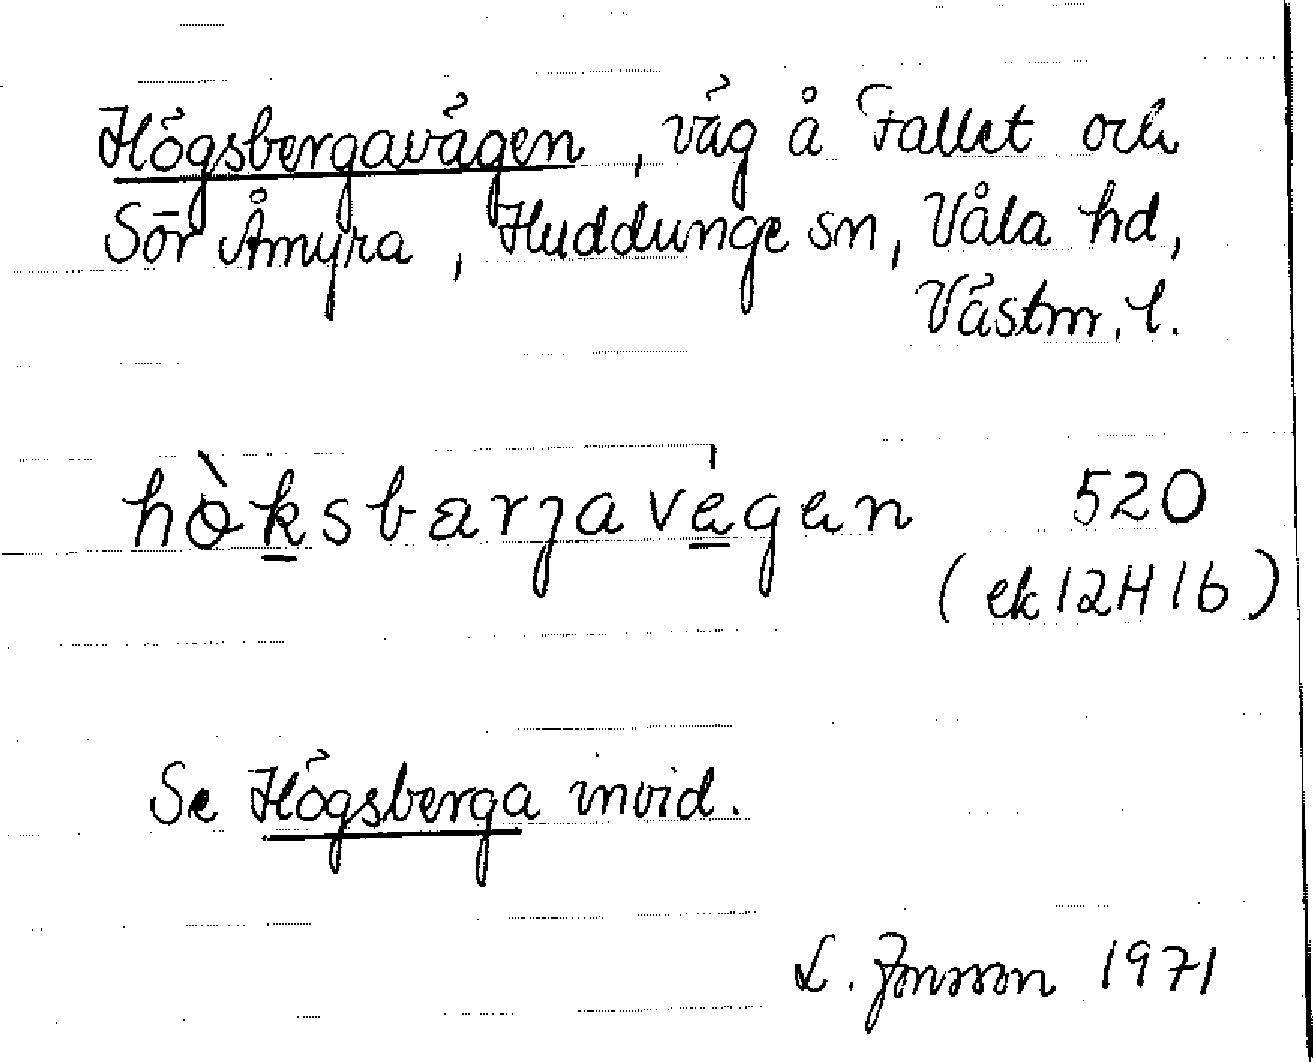 Högsbergavägen, väg å Fallet och
Sör Åmyra, Huddunge sn, Våla hd,
Västm. l.
hò̱ksbærjavægæn 520
(ek 12H 1b)
Se Högsberga invid.
L. Jonsson 1971